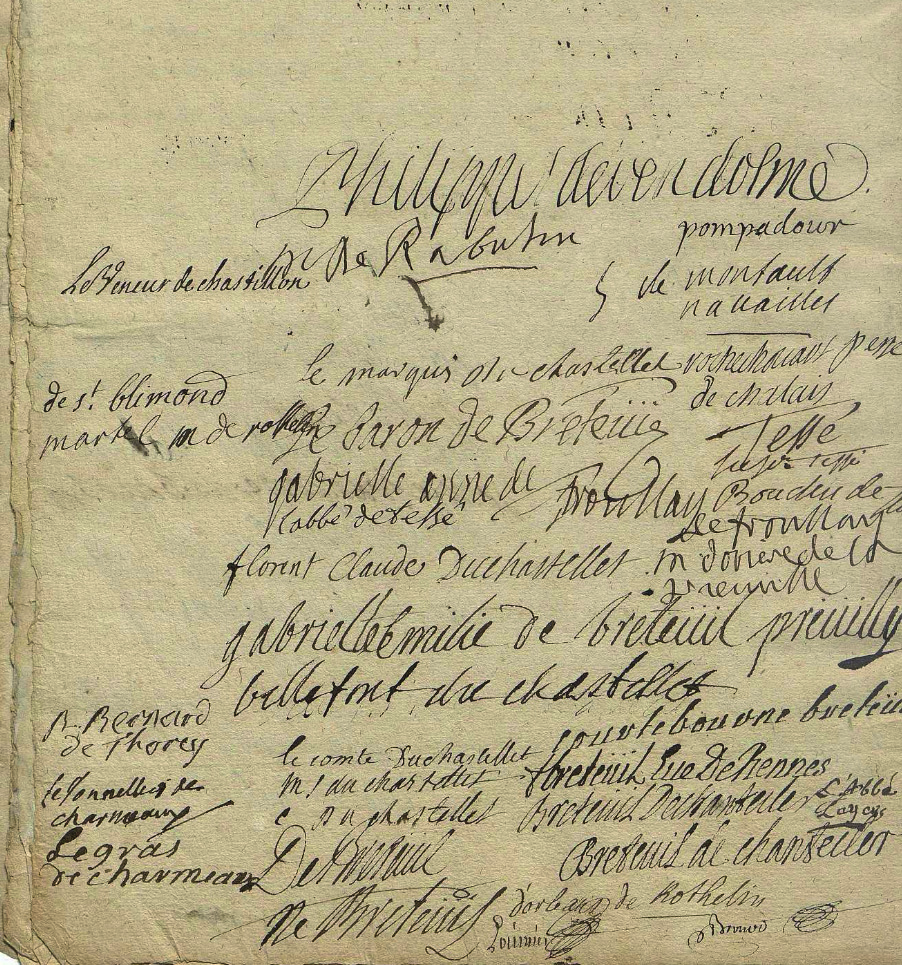 Philippe de vendosme
pompadour
de Rabutin
Le Veneur de chastillon
de montault
navailles
le marquis du chastellet
rochechouart
de chalais
de st. blimond
martel m de
Le Baron de Breteüil
Tessé
gabrielle anne de froullay
Boudin de
l'abbé de tessé
de froullay
florent Claude Duchastellet
de la
vieuville
gabrielle Emilie de breteüil preüilly
bellefont du chastellet
B. Regnard
de Thorey
courtebourne breteüil
le comte Duchastellet
m. s du chastellet
fbreteüil Eve De Rennes
le Tonnellier de
charmeaux
c du chastellet
Breteuil Dechantecler
L'Abbé
Legras
de charmeaux
De Breteuil
Breteuil de chantecler
De Breteüil
d'orleans de Rothelin